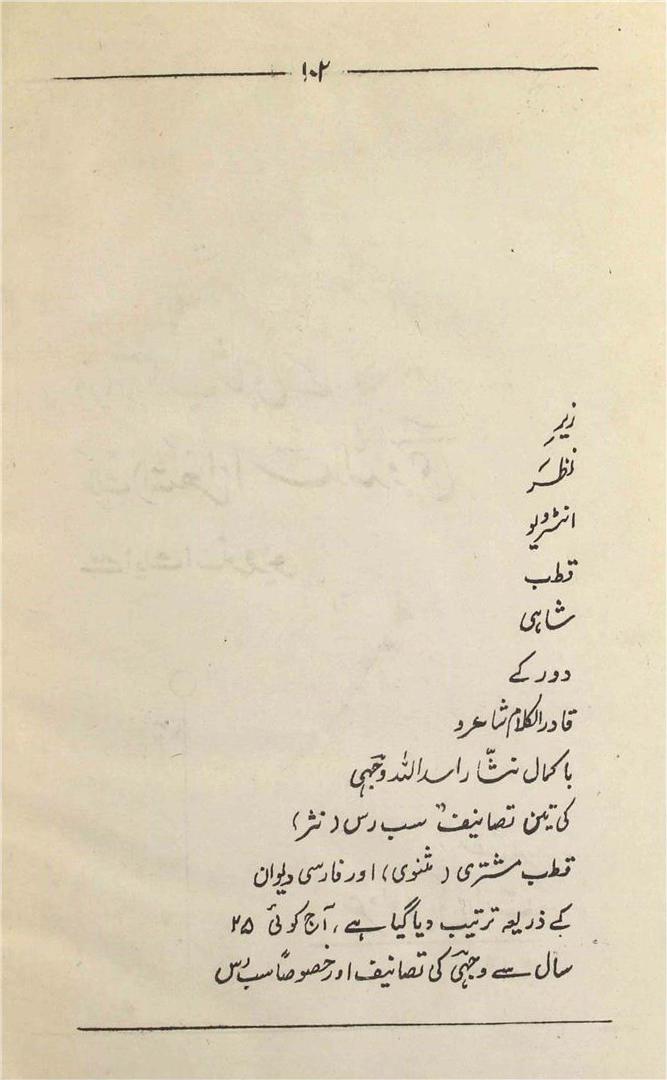 ۱۰۲
زیرِ
نظَر
انٹرویو
قطب
شاہی
دور کے
قادرالکلام شاعر و
باکمال نثّار اسد اللہ وجہی
کی تین تصانیف " سب رس (نثر)
قطب مشتری (مثنوی) اور فارسی دیوان
کے ذریعہ ترتیب دیا گیا ہے، آج کوئی ۲۵
سال سے وجہی کی تصانیف اور خصوصاً سب رس